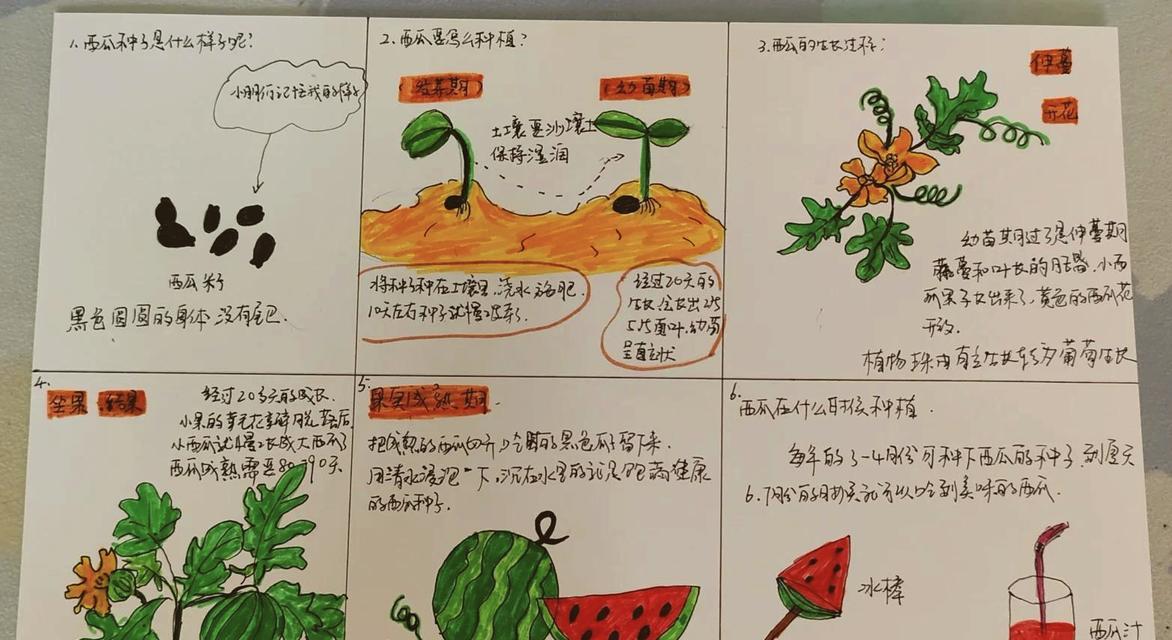 1.西瓜种子是什么样子呢?
小朋友们记住我的样子
西瓜籽
黑色圆圆的身体 没有包
2.西瓜要怎么种植?
(发芽期)
(幼苗期)
土壤要沙壤土
保持湿润
将种子种在土壤里,浇水施肥,
10天左右种子就
经过20天的
生长,会长出2片
5片真叶,幼苗
呈直立状
3.西瓜的生长过程?
伸蔓
开花
幼苗期过了是伸蔓期
藤蔓和叶长的
小西
瓜果子长出来了,黄色的西瓜花
开放.
植物
由直立生长转为匍匐生长
4.
坐果 结果
经过20多天的成长,
小果的
花瓣脱落后,
小西瓜就慢慢长成大西瓜了
西瓜成熟需要80-90天
5.
果实成熟期.
把成熟的西瓜切开,
的黑色瓜子留下来.
用清水浸泡一下,沉在水里的就是饱满健康
的西瓜种子.
6.
西瓜在什么时候种植.
每年的3-4月份可种下西瓜的种子,到夏天
6.7月份的时候就可以吃到美味的西瓜.
冰棒
西瓜汁